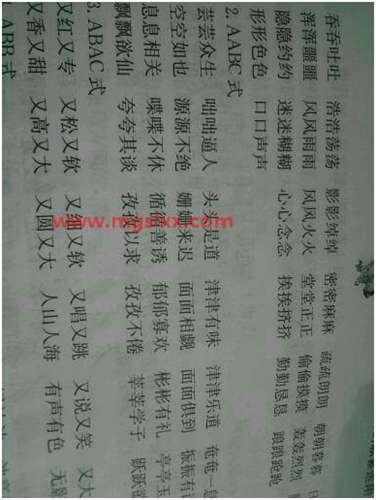 吞吞吐吐 浩浩荡荡 影影绰绰 密密麻麻 疏疏朗朗 朝朝暮暮
浑浑噩噩 风风雨雨 风风火火 堂堂正正 偷偷摸摸 轰轰烈烈
隐隐约约 迷迷糊糊 心心念念 挨挨挤挤 勤勤恳恳 踉踉跄跄
形形色色 口口声声
2. AABC 式
芸芸众生 咄咄逼人 头头是道 津津有味 津津乐道 奄奄一
空空如也 源源不绝 姗姗来迟 面面相觑 面面俱到 振振有
息息相关 喋喋不休 循循善诱 郁郁寡欢 彬彬有礼 亭亭玉
飘飘欲仙 夸夸其谈 孜孜以求 孜孜不倦 莘莘学子 跃跃欲
3. ABAC 式
又红又专 又松又软 又软 又唱又跳 又说又笑 又大
又香又甜 又高又大 又圆又大 人山人海 有声有色 无
ABB 式